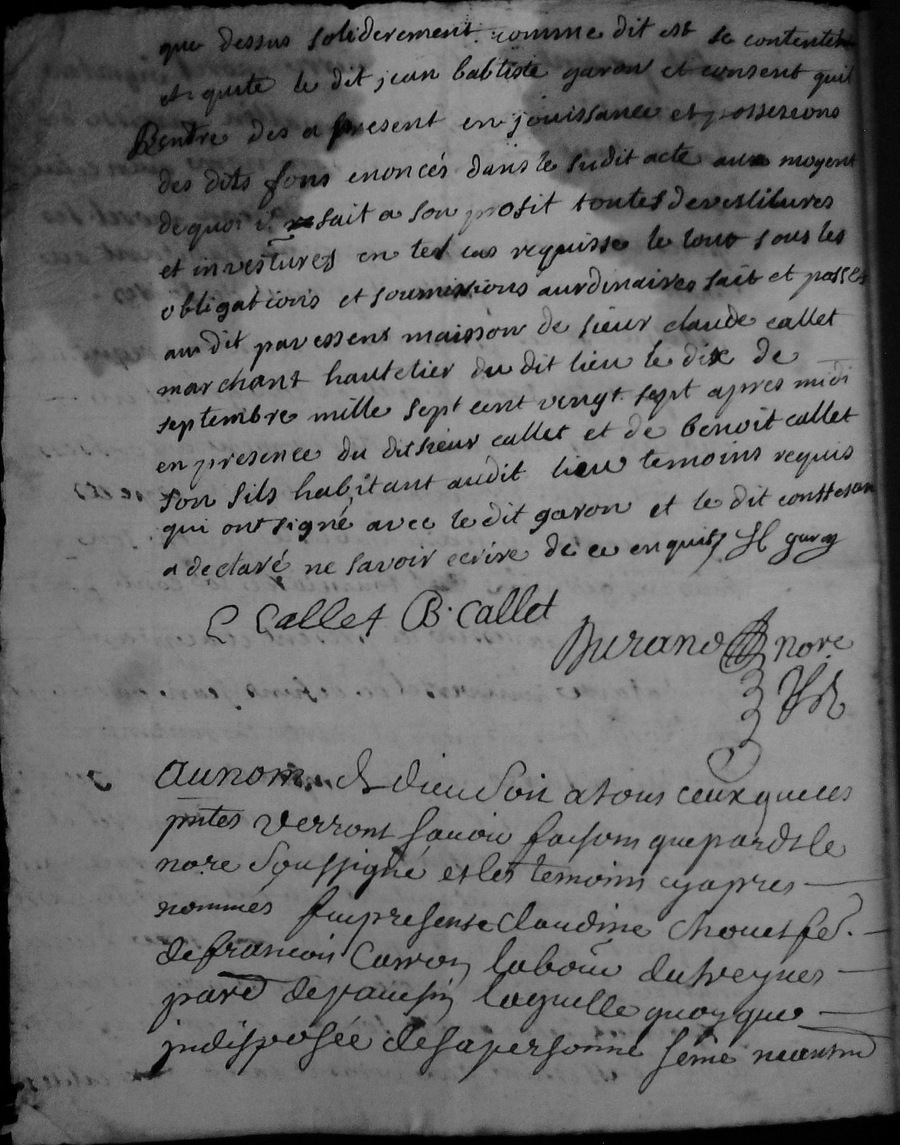 que dessus soliderement comme dit est se contente
et quite le dit jean baptiste garon et consent quil
Rentre des a present en jouissance et possesions
des dits fons enoncés dans le sudit acte aux moyent
de quoi il fait a son profit toutes devestitures
et investures en tel cas requisse le tout sous les
obligations et soumissions aurdinaires fait et passé
audit pavessens maisson de sieur claude callet
marchant hautelier du dit lieu le dix de
septembre mille sept cent vingt sept apres midi
en presence du dit sieur callet et de benoit callet
son fils habitant audit lieu temoins requis
qui ont signé avec le dit garon et le dit
a declaré ne savoir ecrire de ce enquis JB garon
C Callet B. Callet
Durand nore
au nom de dieu soit a tous ceux que ces
pntes verront savoir faisons que pardt le
nore soussigné et les temoins cy apres
nommés fut presente Claudine Chouet fe.
de francois Carron labour du
parr de laquelle quoy que
indisposée de sa personne